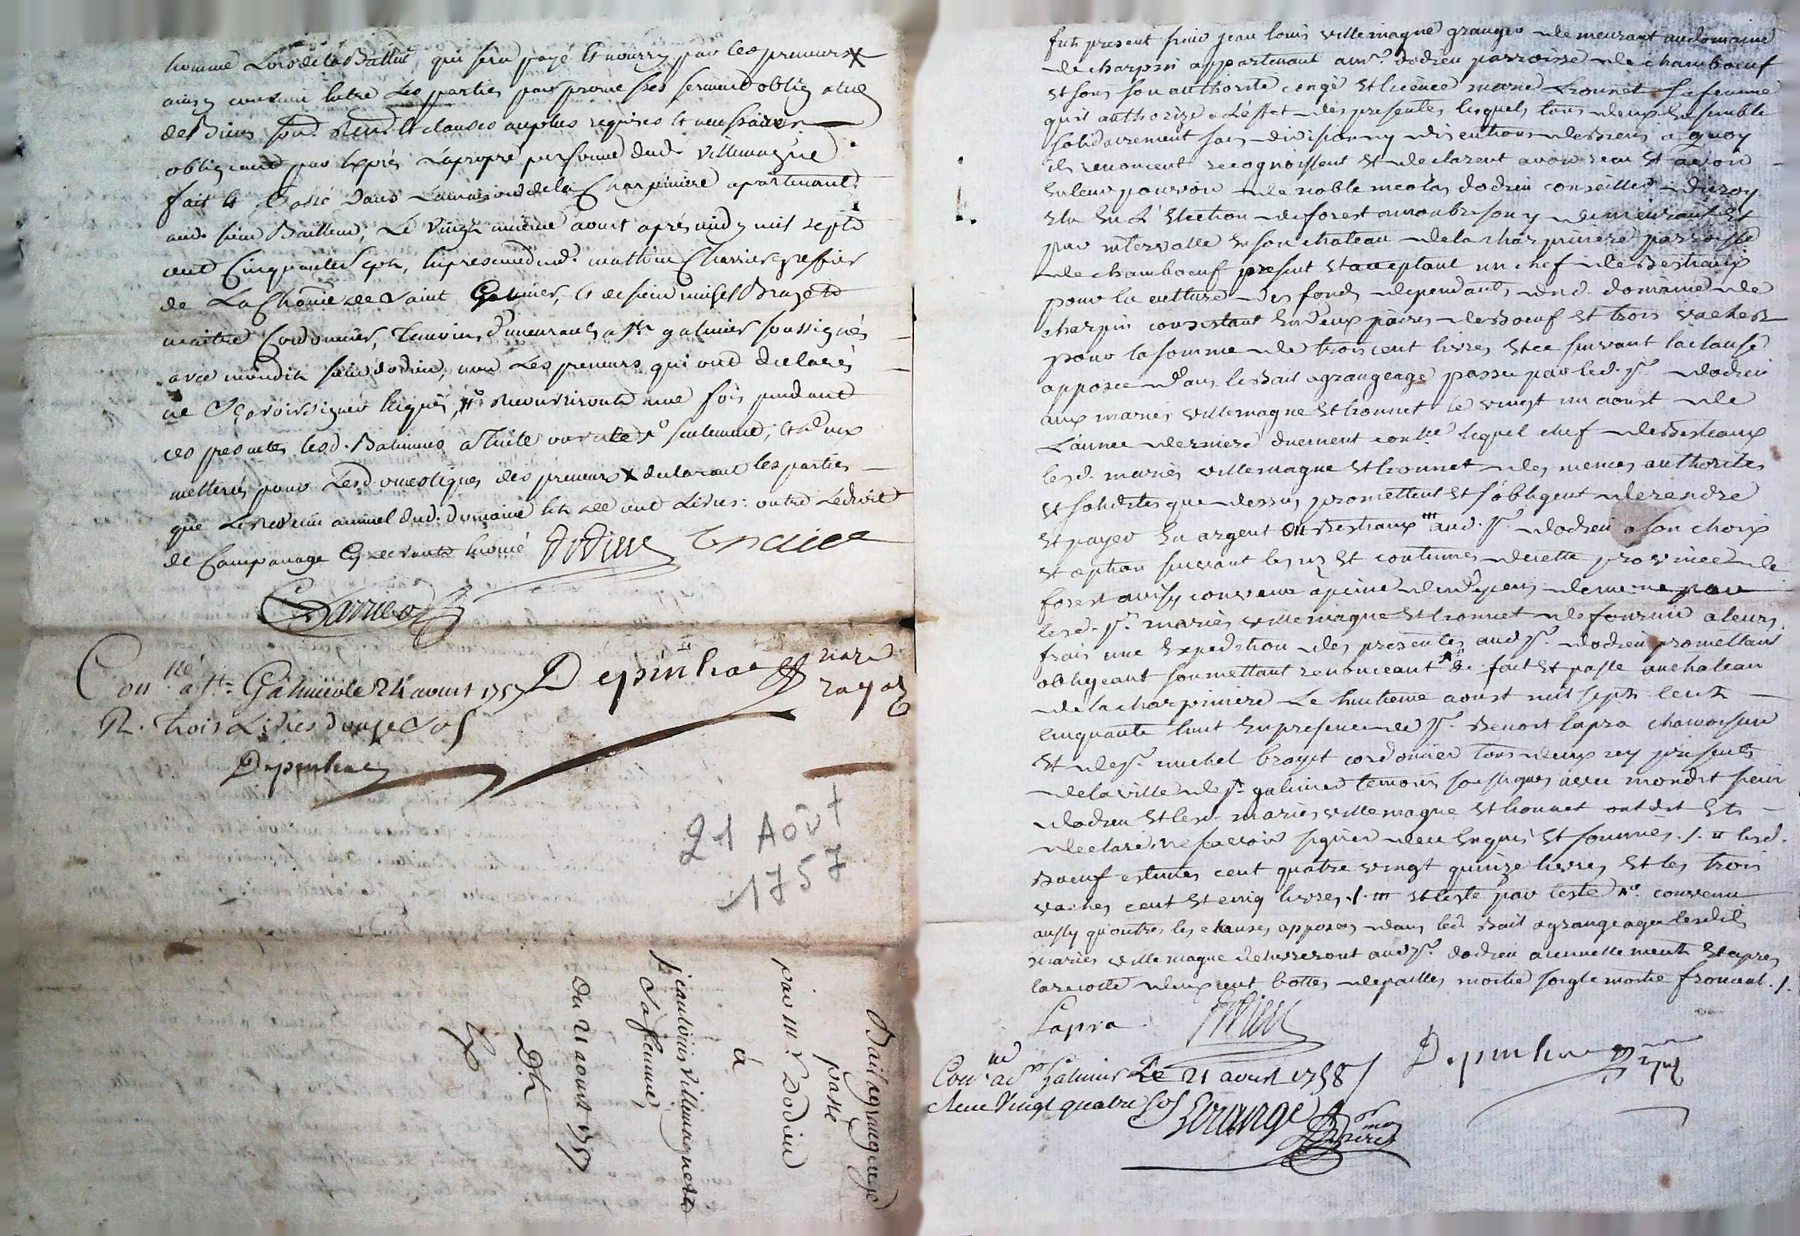 homme Lors de la Battue, qui sera payé & nourry par les preneurs X
ainsy convenu entre Les parties par promesses serment oblig. alied
de Biens soud. Rend. & clauses au plus requises & necessaires
obligeant par Exprés Lapropre personne dud. Villemagne
fait & Passé dans La maison de la Charpiniere apartenante
aud. sieur Bailleur, Le vingt unième aoust aprés midy mil sept
cent Cinquante Sept, En presence de mathieu Charrier greffier
de La Chatnie de Saint Galmier, & de sieur michel Brayet
maitre Cordonnier, Temoins, demeurants a St. galmier soussignés
avec mondit sieur dodieu, non Les preneurs qui ont declarés
ne Sçavoir signer Enquis, #. Recouvriront une fois pendant
ces presentes lesd. Batimens a Tuile ouverte seulement; & deux
metteries pour Les domestiques des preneurs X declarant les parties
que Le Revenu annuel dud. domaine Est de cent Livres: outre Ledroit
de Champanage
dodieu
Charrier
Con.llé a St. Galmier le 24 aoust 1757
R. trois Livres douze Sols
Depinhac
Depinhac nore royal
21 Août
1757
Bail agrangeage
passé
par mr. Dodieu
à
Jean Louis villemagne et
Sa femme,
du 21 aoust 1757
furt present sieur jean louis villemagne granger demeurant au domaine
de charpin appartenant a mr. dodieu parroisse de chambœuf
et sous son authorité congé et licence marie Thonnet sa femme
qu'il authorize a L'effet des presentes lesquels tous deux Ensemble
solidairement sans division ny discution de biens a quoy
ils renoncent recognoissent et declarent avoir reçu et avoir
en leur pouvoir de noble nicolas dodieu conseiller du roy
Elu En L'Election de forest a montbrison y demeurant et
par intervalle En son chateau de la charpiniere parroisse
de chambœuf present et acceptant un chef de Bestiaux
pour la culture des fonds dependants dud. domaine de
charpin consistant En deux paires de Bœuf et trois vaches
pour la somme de trois cent livres et ce suivant la clause
apposée dans le Bail agrangeage passé par led. sr. dodieu
aux mariés villemagne et thonnet le vingt un aoust de
L'année derniere duement contlé lequel chef de Bestiaux
lesd. mariés villemagne et thonnet des memes authorités
et solidités que dessus promettent et s'obligent de rendre
et payer En argent ou Bestiaux III aud. sr. dodieu a son choix
et option suivant les us et coutumes de cette province de
forest ainsy convenu a peine de depens de meme que
lesd. mariés villemagne et thonnet de fournir a leurs
frais une Expedition des presentes aud. sr. dodieu promettant
obligeant soumettant renonceant &. fait et passé au chateau
de la charpiniere Le huitieme aoust mil sept cent
cinquante huit En presence de sr. Benoit Lapra
et de sr. michel brayet cordonier tous deux icy presents
de la ville de st. galmier temoins soussignés avec mondit sieur
dodieu et lesd. mariés villemagne et thonnet ont dit et
declaré ne sçavoir signer de ce Enquis et sommés ./. II lesd.
Bœuf estimés cent quatre vingt quinze livres et les trois
vaches cent et cinq livres ./. III et teste par teste convenu
aussy qu'outre les clauses apposées dans led. Bail agrangeage lesdits
mariés villemagne delivreront aud. sr. dodieu annuellement et apres
la recolte deux cent bottes de pailles moitié soigle moitié froment ./.
Lapra
dodieu
Depinhac
Con.llé a St. Galmier Le 21 aoust 1758
Reçu Vingt quatre Sols